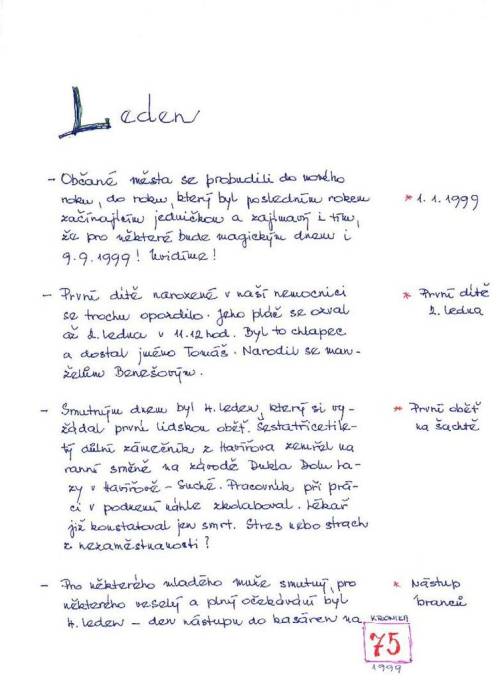 Leden
- Občané města se probudili do nového
roku, do roku, který byl posledním rokem
začínajícím jedničkou a zajímavý i tím,
že pro některé bude magickým dnem i
9.9.1999! Uvidíme!
* 1.1.1999
- První dítě narozené v naší nemocnici
se trochu opozdilo. Jeho pláč se ozval
až 2. ledna v 11.12 hod. Byl to chlapec
a dostal jméno Tomáš. Narodil se man-
želům Benešovým.
* První dítě
2. ledna
- Smutným dnem byl 4. leden, který si vy-
žádal první lidskou oběť. Šestatřicetile-
tý důlní zámečník z Havířova zemřel na
ranní směně na závodě Dukla Dolu La-
zy v Havířově - Suché. Pracovník při prá-
ci v podzemí náhle zkolaboval. Lékař
již konstatoval jen smrt. Stres nebo strach
z nezaměstnanosti?
* První oběť
na šachtě
- Pro některého mladého muže smutný, pro
některého veselý a plný očekávání byl
4. leden - den nástupu do kasáren na
* Nástup
branců
KRONIKA
75
1999